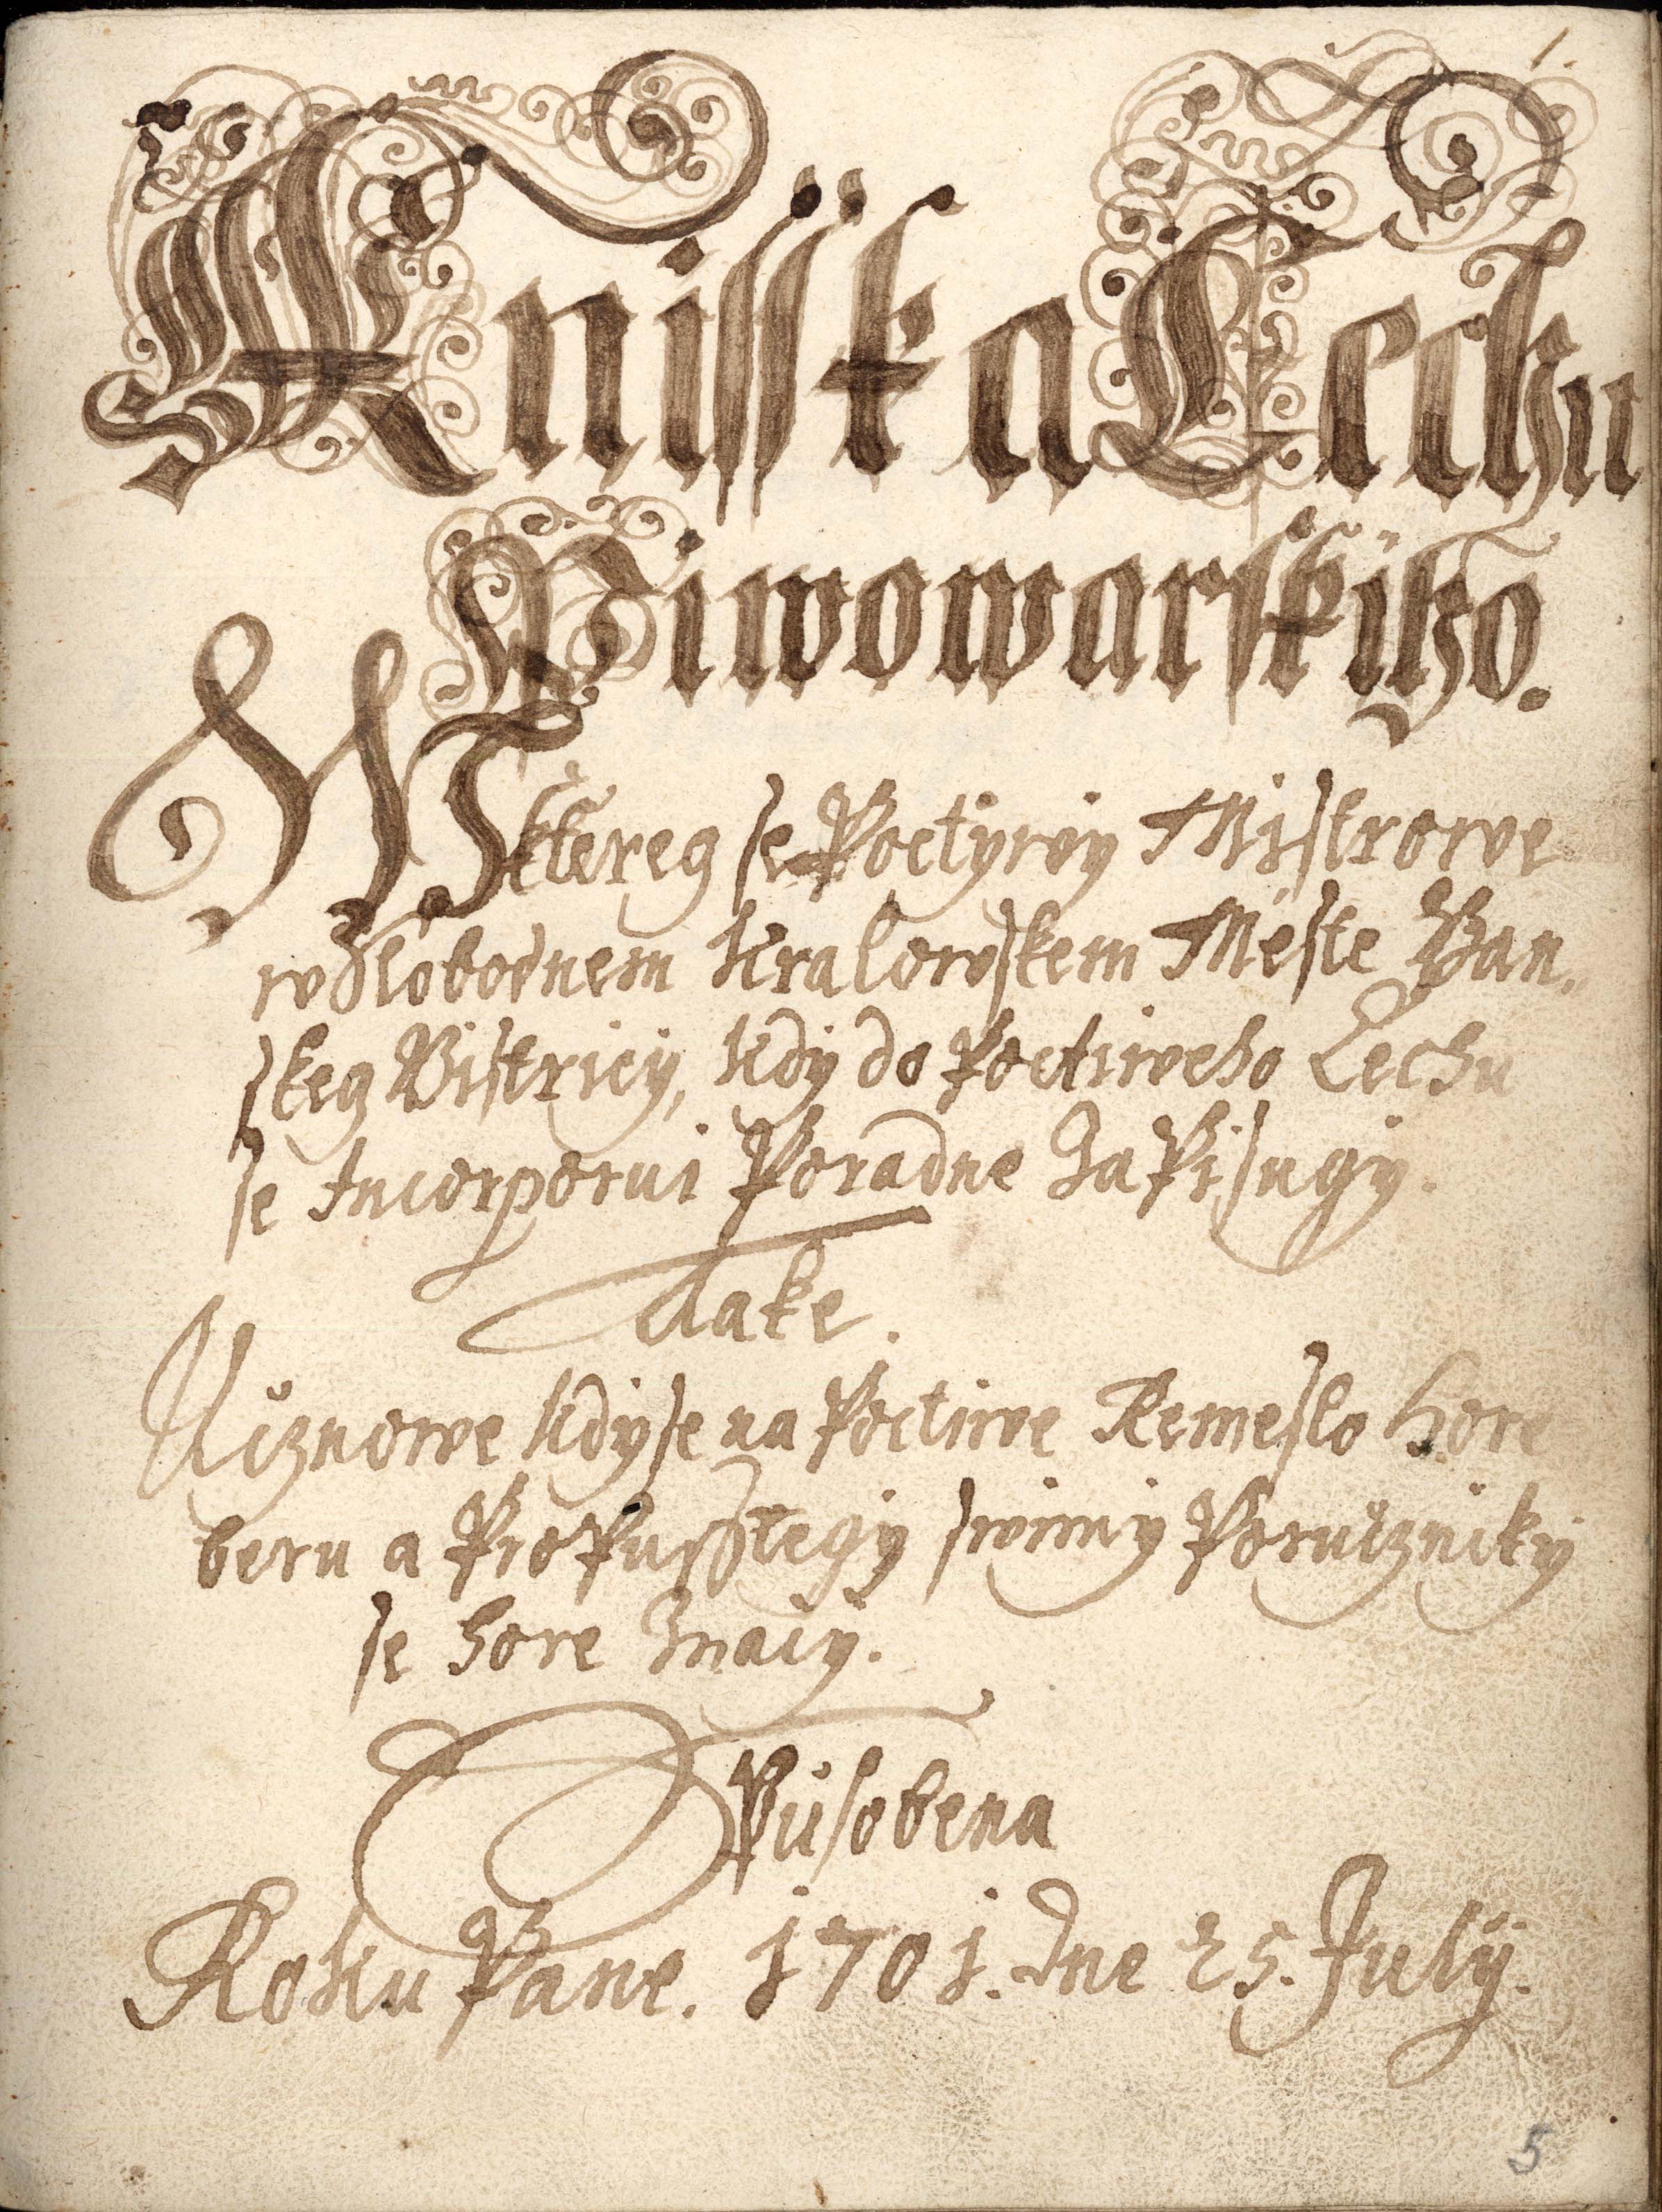 1.
Knisska Cechu
Piwowarskiho.
W ktereg se Poctiwy Mistrowe
w Slobodnem Kralowskem Meste Ban,
skeg Bistricy, kdy do Poctiweho Cechu
se Incorporui Poradne Za Pisugy.
Take.
Ucznowe kdy se na Poctiwe Remeslo hore
beru a ProPusstegy swimy Poruczniky
se hore Znaiy.
Pusobena
Roku Pane. 1701. Dne 25. July.
5